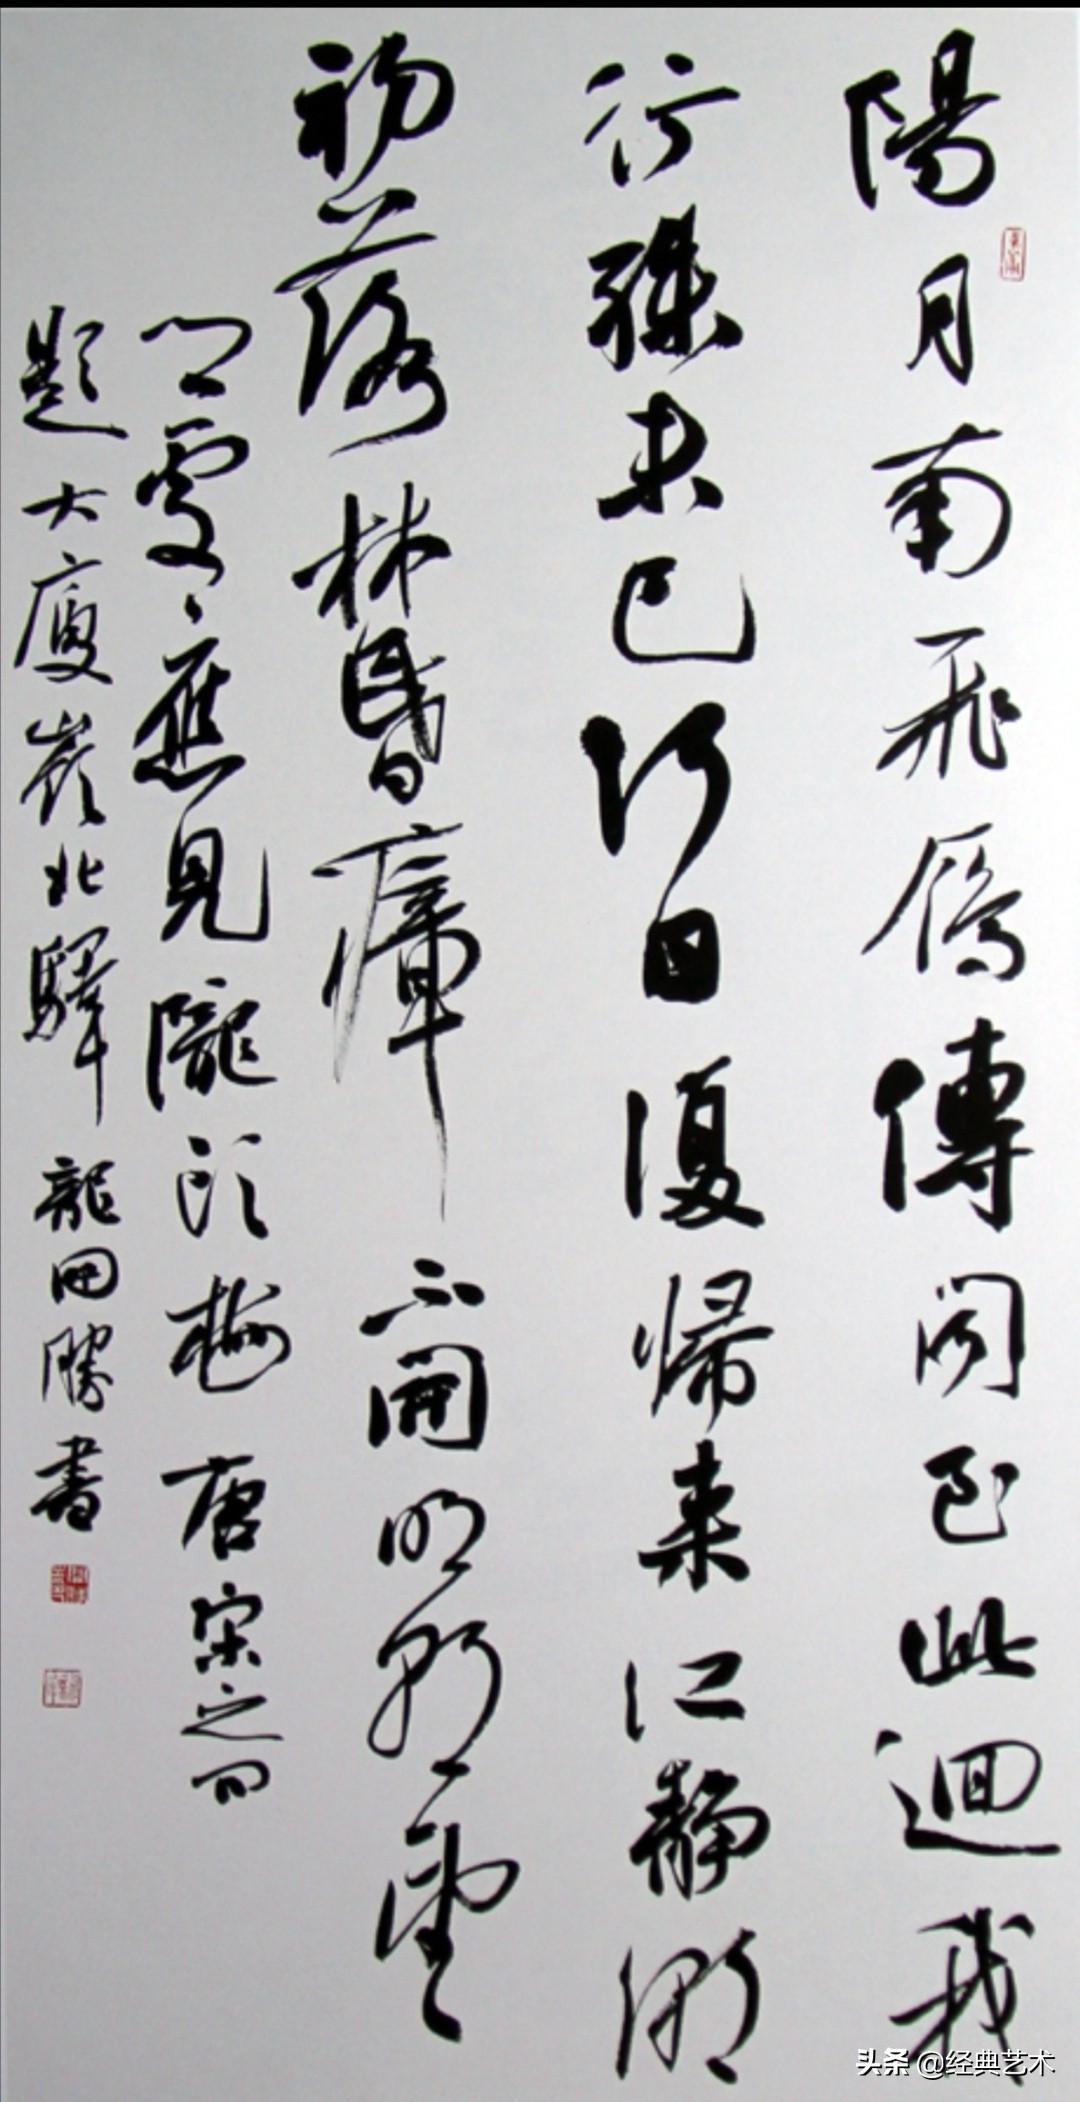 陽月南飛雁傳聞至此迴我
行殊未已何日復歸來江靜潮
初落林昏瘴不開明朝望
鄉處應見隴頭梅 唐宋之问
題大庾嶺北驛 龍田勝書
头条 @经典艺术